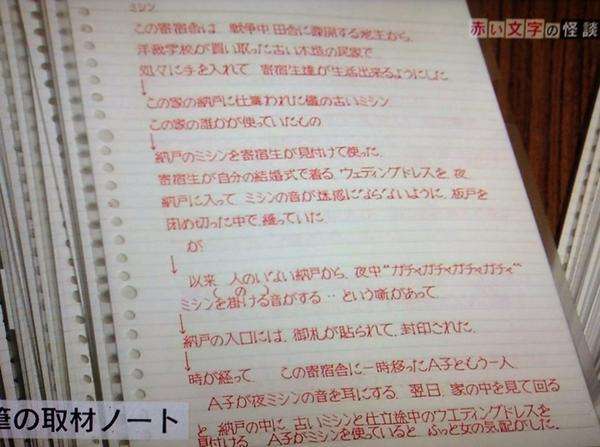 ミシン
赤い文字の怪談
この寄宿舎は、戦争中 田舎に疎開する家主から、
洋裁学校が買い取った古い木造の民家で
処々に手を入れて 寄宿生達が生活出来るようにした
↓
この家の納戸に仕舞われた儘の古いミシン
この家の誰かが使っていたもの
↓
納戸のミシンを寄宿生が見付けて使った.
寄宿生が自分の結婚式で着る ウェディングドレスを、夜
納戸に入って ミシンの音が迷惑にならないように、板戸を
閉め切った中で、縫っていた
が
↓
以来 人のいない納戸から、夜中"ガチャガチャガチャガチャ"
ミシンを掛ける音がする‥という噂があって
↓
納戸の入口には、御札が貼られて、封印された.
↓
時が経って この寄宿舎に一時移ったA子ともう一人
A子が夜ミシンの音を耳にする. 翌日、家の中を見て回る
と 納戸の中に 古いミシンと仕立途中のウエディングドレスを
見付ける A子がミシンを使っていると ふっと女の気配がした.
筆の取材ノート